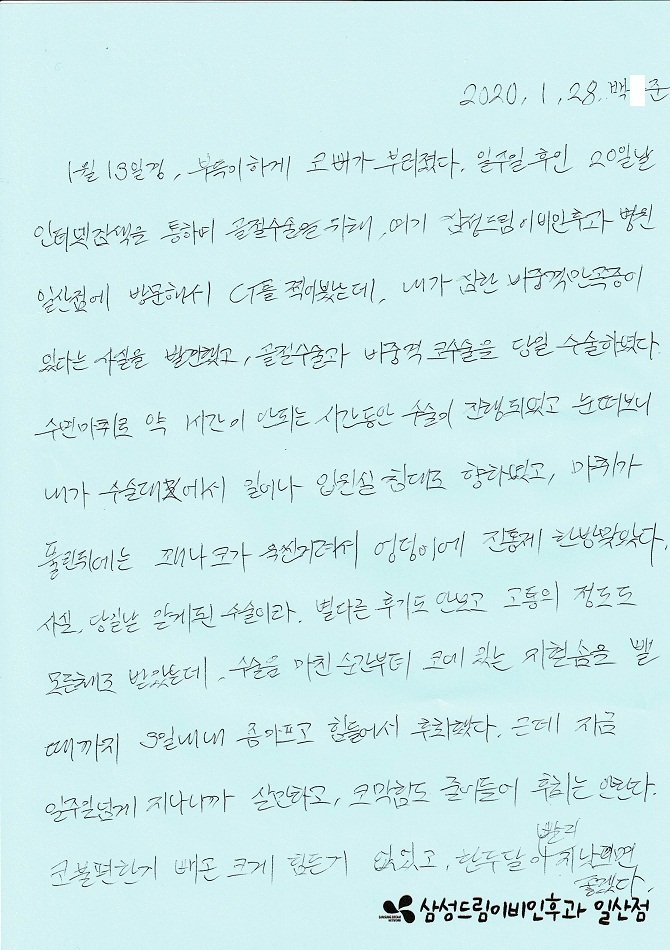 2020. 1. 28. 백 준
1월 13일경, 부득이하게 코뼈가 부러졌다. 일주일 후인 20일날
인터넷검색을 통하여 골절수술을 위해, 여기 삼성드림이비인후과 병원
일산점에 방문해서 CT를 찍어봤는데, 내가 심한 비중격만곡증이
있다는 사실을 발견했고, 골절수술과 비중격 코수술을 당일 수술하였다.
수면마취로 약 1시간이 안되는 시간동안 수술이 진행되었고 눈떠보니
내가 수술대에서 일어나 입원실 침대로 향하였고, 마취가
풀린뒤에는 꽤나 코가 욱씬거려서 엉덩이에 진통제 한방맞았다.
사실, 당일날 맡게된 수술이라. 별다른 후기도 안보고 고통의 정도도
모른체로 받았는데, 수술을 마친 순간부터 코에 있는 지혈솜을 뺄
때까지 3일내내 좀아프고 힘들어서 후회했다. 근데 지금
일주일넘게 지나니까 살만하고, 코막힘도 줄어들어 후회는 안한다.
코불편한거 빼곤 크게 힘든거 없었고, 한두달 빨리 지났으면
좋겠다.
삼성드림이비인후과 일산점